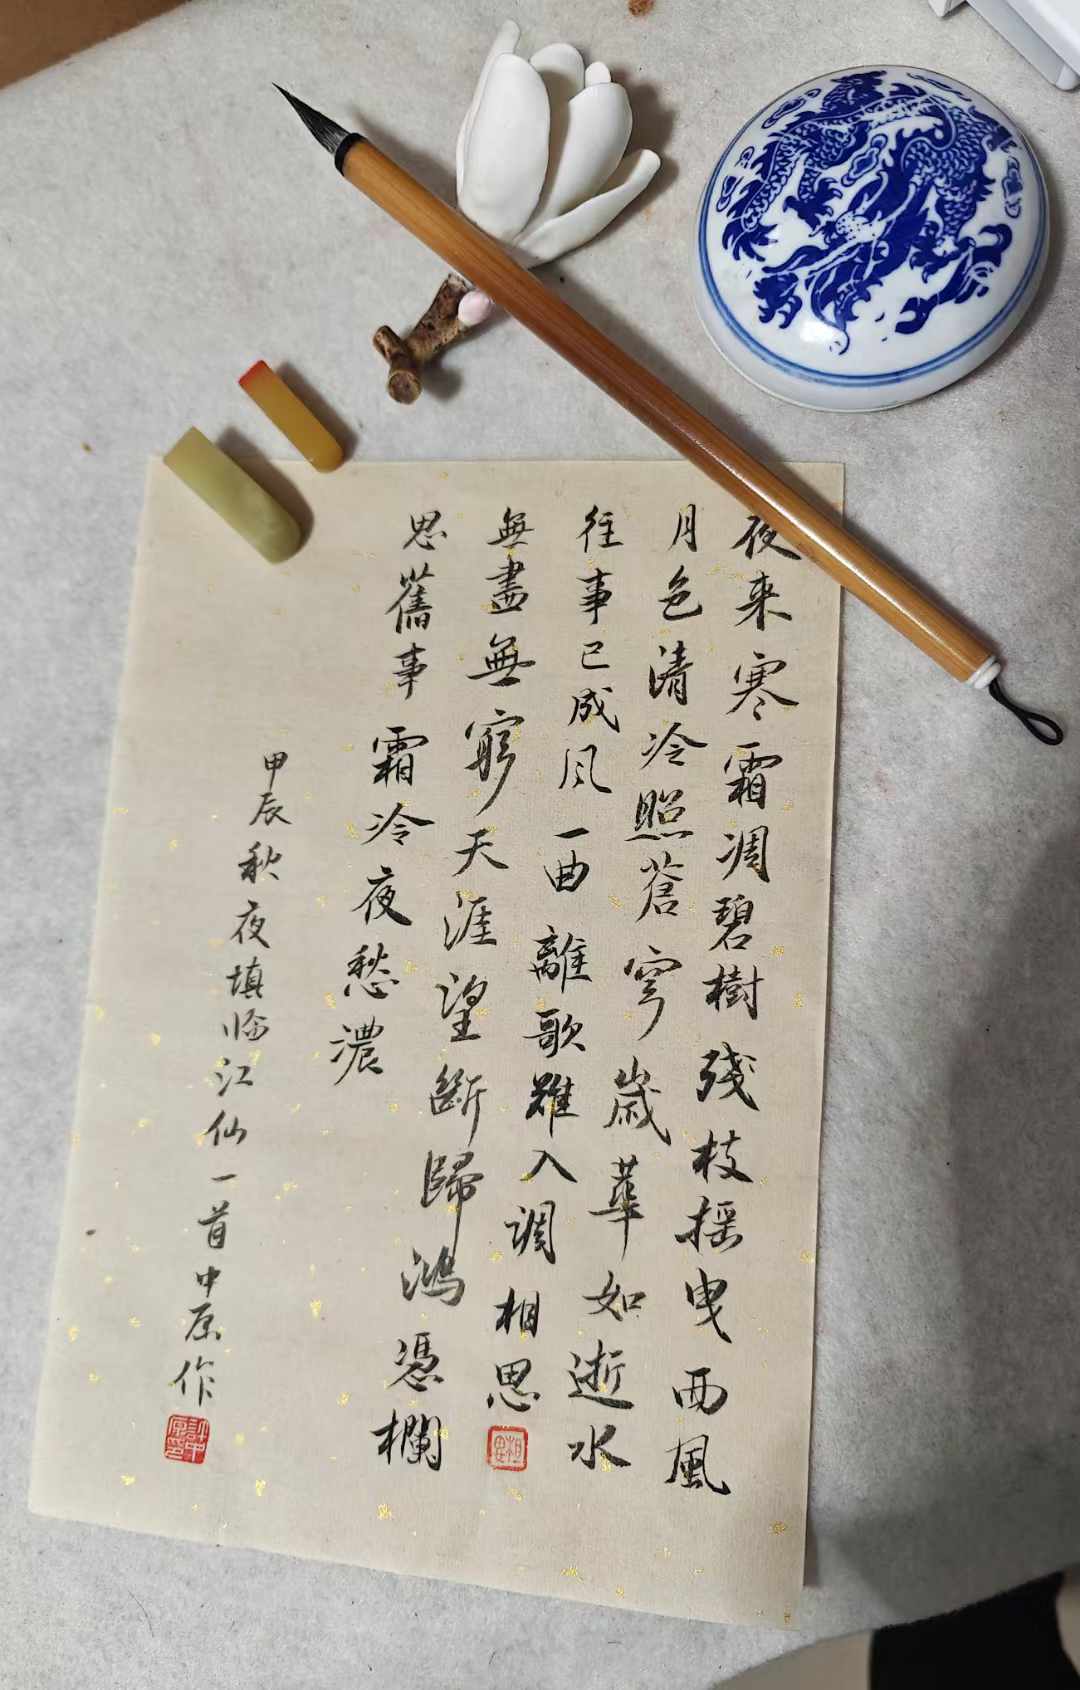 夜来寒霜凋碧樹殘枝摇曳西風
月色清冷照蒼穹歲華如逝水
往事已成风一曲離歌難入調相思
無盡無窮天涯望斷歸鴻憑欄
思舊事霜冷夜愁濃
甲辰秋夜填临江仙一首中原作
相思
許中原印